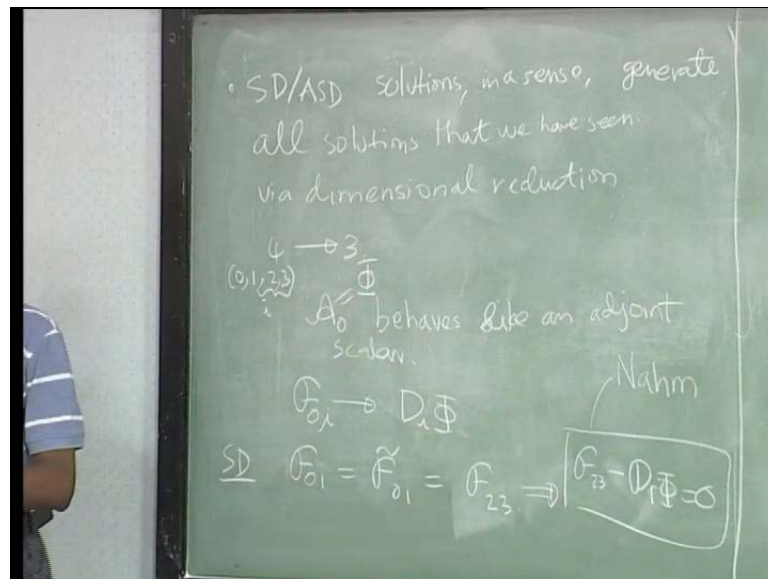 • SD/ASD solutions, in a sense, generate
all solutions that we have seen.
via dimensional reduction
4 → 3
(0,1,2,3)
i
A₀ = Φ behaves like an adjoint
scalar.
F₀ᵢ → DᵢΦ
Nahm
SD F₀₁ = F̃₀₁ = F₂₃ ⇒ F₂₃ − D₁Φ = 0